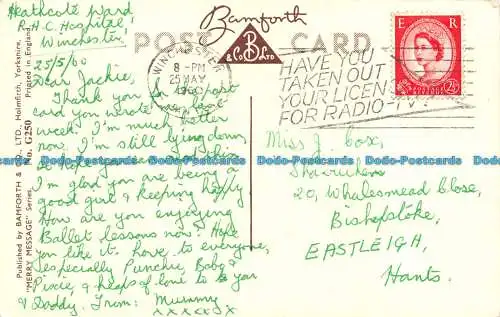 Heathcote Ward
R.H.C. Hospital
Winchester
25/5/60
Dear Jackie,
Thank you for the last
card you wrote me
week. I'm much better
now. I'm still lying down
I'm glad you are being a
good girl & keeping happy
How are you enjoying
Ballet lessons now? Hope
you like it. Love to everyone,
especially Punchie, Baba &
Pixie, & heaps of love to you
& Daddy. From: Mummy
xxxxxxx
Published by BAMFORTH & CO., LTD., Holmfirth, Yorkshire.
"MERRY MESSAGE" Series. No. G250 Printed in England
Bamforth
POST CARD
& Co. B LTD
WINCHESTER
8 - PM
25 MAY
1960
HAVE YOU
TAKEN OUT
YOUR LICENCE
FOR RADIO-TV
E R
2½D
Miss J. Cox,
20, Whalesmead Close,
Bishopstoke,
EASTLEIGH,
Hants.
Dodo-Postcards Dodo-Postcards Dodo-Postcards Dodo-Postcards